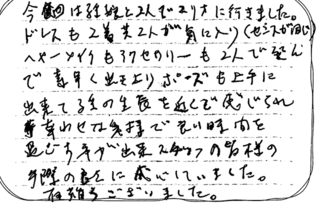 今回は経姫と2人でスタジオに行きました。
ドレスも2着共2人が気に入り(センスが同じ)
ヘヤーメイクもアクセサリーも2人で選んで
で素早く出き上りポーズも上手に
出来て孫の生長を近くで感じられ
幸わせな気持で良い時間を
過ごす事が出来スタッフの皆様の
手際の良さに感心していました。
有難うございました。